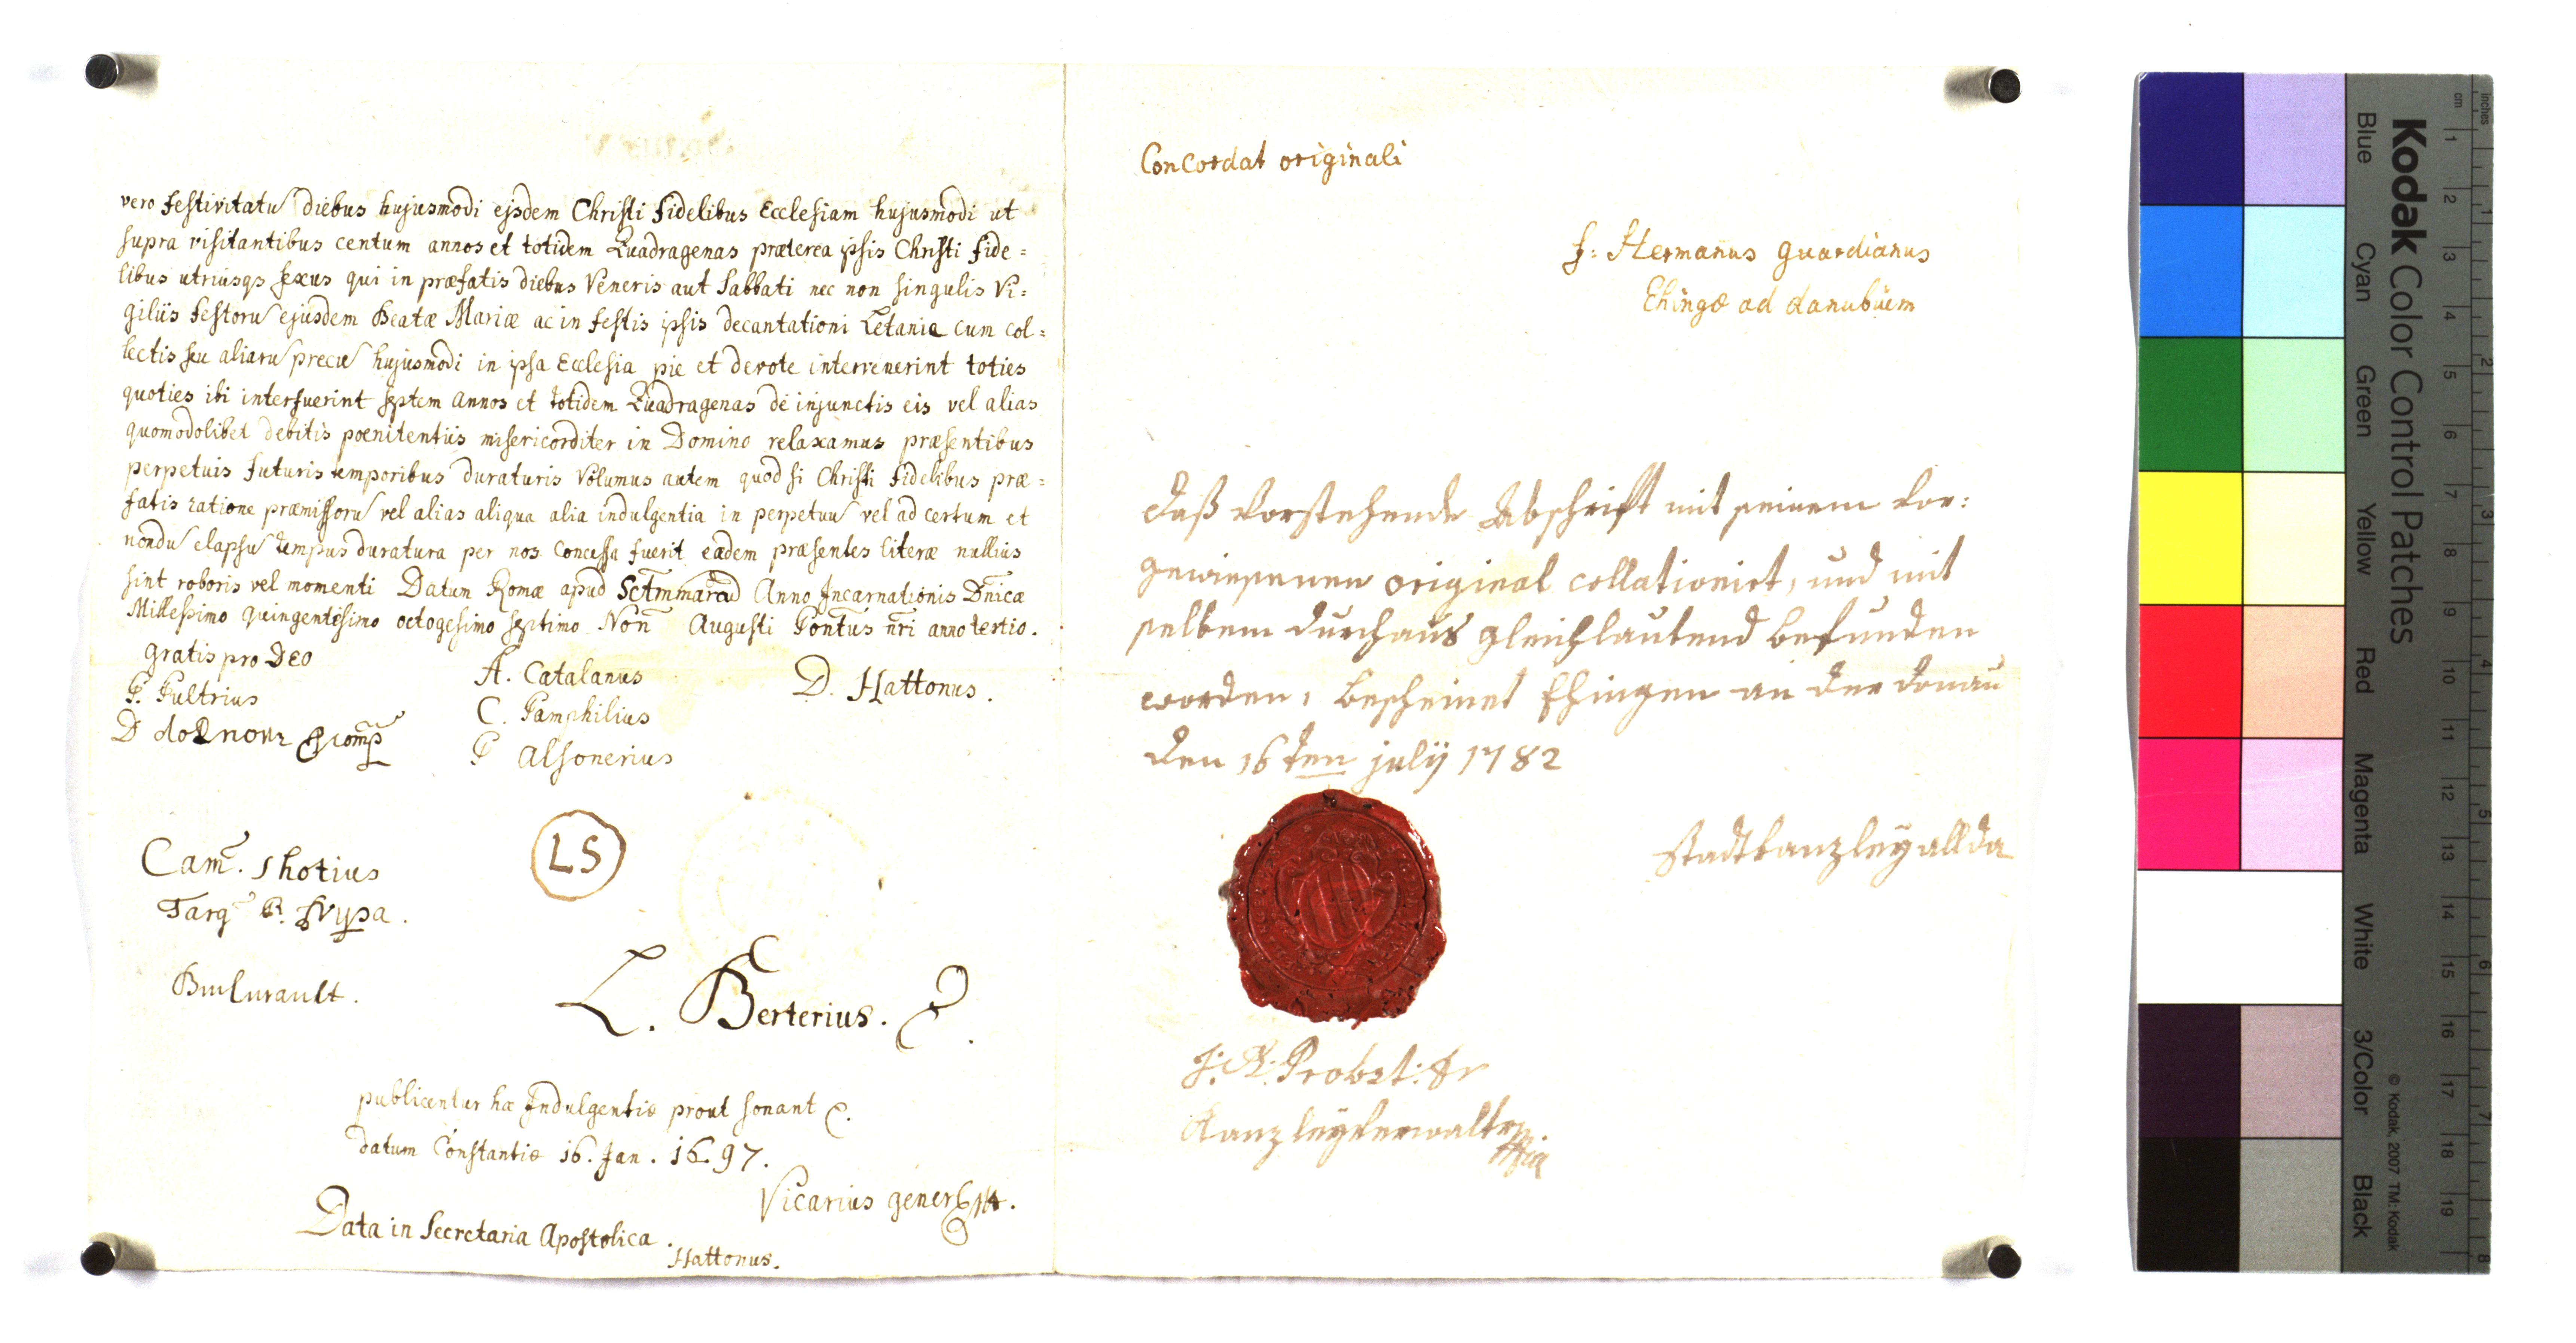 vero festivitatu diebus hujusmodi ejsdem Christi fidelibus Ecclesiam hujusmodi ut
supra visitantibus centum annos et totidem Quadragenas præterea ipsis Christi fide =
libus utriusqs sexus qui in præfatis diebus Veneris aut Sabbati nec non singulis Vi =
giliis festoru ejusdem Beatæ Mariæ ac in festis ipsis decantationi Letaniæ cum col =
lectis seu aliaru precu hujusmodi in ipsa Ecclesia pie et devote intervenerint toties
quoties ibi interfuerint septem annos et totidem Quadragenas de injunctis eis vel alias
quomodolibet debitis pœnitentiis misericorditer in Domino relaxamus præsentibus
perpetuis futuris temporibus duraturis Volumus autem quod si Christi fidelibus præ =
fatis ratione præmissoru vel alias aliqua alia indulgentia in perpetuu vel ad certum et
nondu elapsu tempus duratura per nos concessa fuerit eædem præsentes literæ nullius
sint roboris vel momenti Datum Romæ apud Anno Incarnationis Dnicæ
Millesimo quingentesimo octogesimo septimo Non Augusti Pontus nri anno tertio.
gratis pro Deo
P. Pultrius
D
A. Catalanus
C. Pamphilius
P Alsonerius
D. Hattonus.
Cam. Shotius
Targ R.
LS
L. Berterius.
publicentur hæ Indulgentiæ prout sonant
datum Constantiæ 16. Jan. 1697.
Vicarius general
Data in Secretaria Apostolica.
Hattonus.
Concordat originali
f: Hermanus guardianus
Ehingæ ad danubium
daß vorstehende Abschrift mit seinem vor:
gewiesenen original collationirt, und mit
selbem durchaus gleichlautend befunden
worden, bescheinet Ehingen an der donau
den 16ten julij 1782
Stadtkanzley allda
J: A: Probst:
Kanzleyverwalter
Kodak Color Control Patches
Blue
Cyan
Green
Yellow
Red
Magenta
White
3/Color
Black
© Kodak, 2007 TM: Kodak
cm
1
2
3
4
5
6
7
8
9
10
11
12
13
14
15
16
17
18
19
inches
1
2
3
4
5
6
7
8